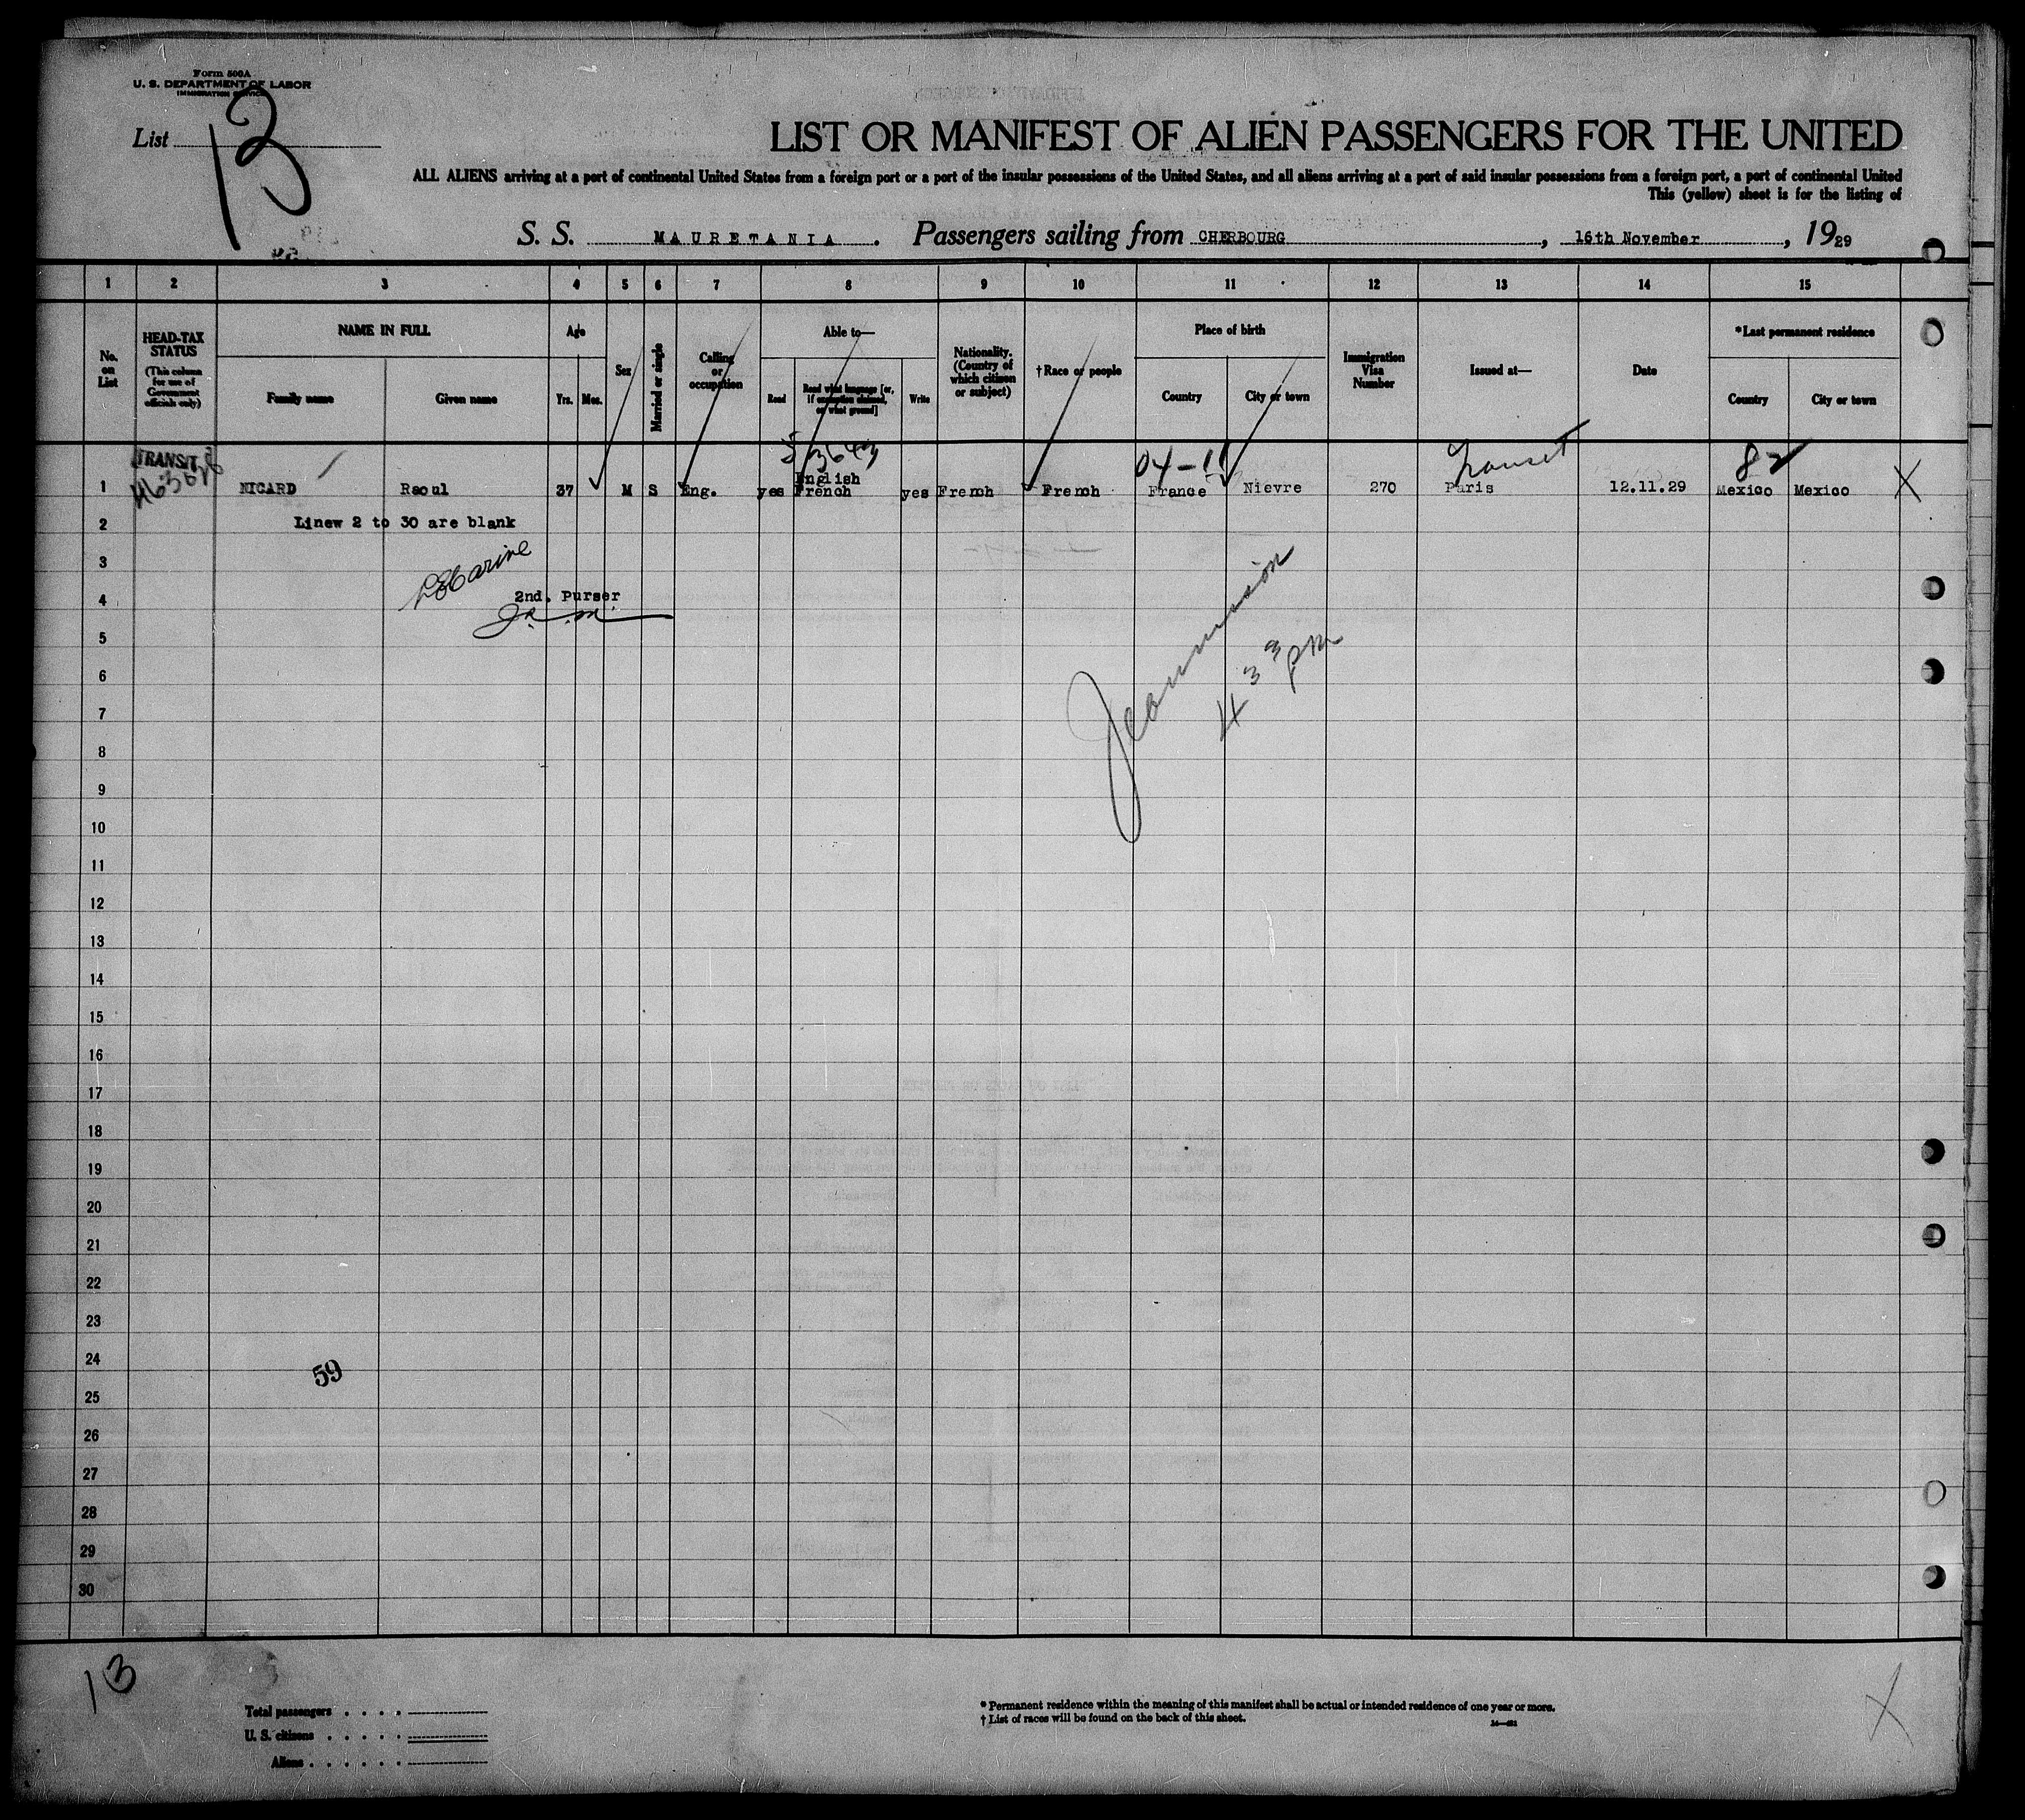 Form 500A
U. S. DEPARTMENT OF LABOR
IMMIGRATION SERVICE
List 13
LIST OR MANIFEST OF ALIEN PASSENGERS FOR THE UNITED
ALL ALIENS arriving at a port of continental United States from a foreign port or a port of the insular possessions of the United States, and all aliens arriving at a port of said insular possessions from a foreign port, a port of continental United
This (yellow) sheet is for the listing of
S. S. MAURETANIA. Passengers sailing from CHERBOURG, 16th November, 1929
1 2 3 4 5 6 7 8 9 10 11 12 13 14 15
No. on List
HEAD-TAX STATUS
(This column for use of Government officials only)
NAME IN FULL
Family name
Given name
Age
Yrs.
Mos.
Sex
Married or single
Calling or occupation
Able to—
Read
Read what language [or, if exemption claimed, on what ground]
Write
Nationality. (Country of which citizen or subject)
†Race or people
Place of birth
Country
City or town
Immigration Visa Number
Issued at—
Date
*Last permanent residence
Country
City or town
TRANSIT 3643 04-11 Transit 82
English
1 NICARD Raoul 37 M S Eng. yes French yes French French France Nievre 270 Paris 12.11.29 Mexico Mexico X
2 Linew 2 to 30 are blank
3
4 2nd. Purser
5
6
7
8
9
10
11
12
13
14
15
16
17
18
19
20
21
22
23
24
59
25
26
27
28
29
30
13
X
Total passengers
U. S. citizens
Aliens
* Permanent residence within the meaning of this manifest shall be actual or intended residence of one year or more.
† List of races will be found on the back of this sheet.